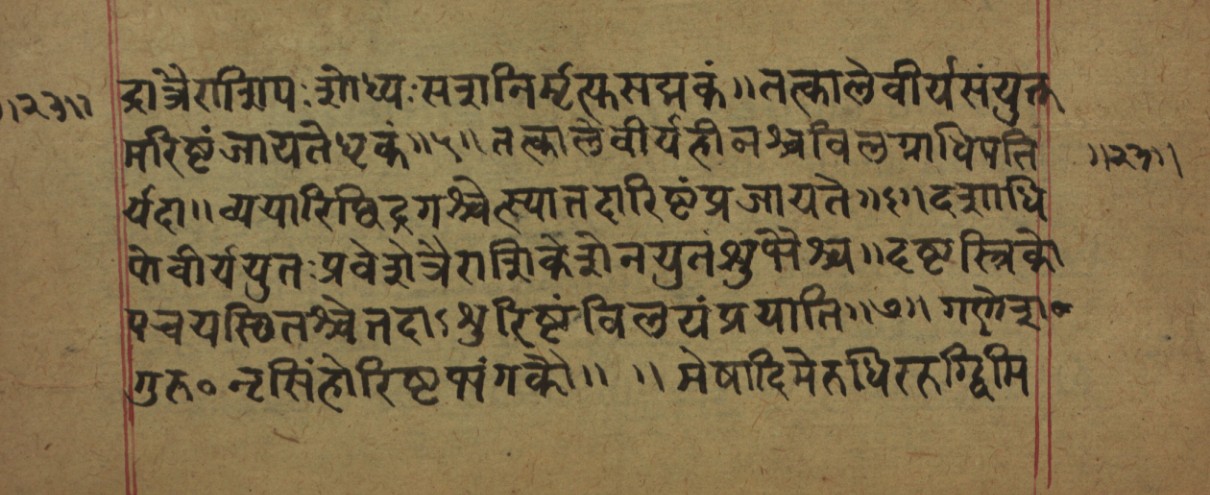 ॥२३॥ द्वात्रैराशिपः शोध्यः सशनिर्मृत्युसद्मकं ॥ तत्कालेवीर्यसंयुक्त
मरिष्टंजायतेधिकं ॥५॥ तत्कालेवीर्यहीनश्चविलग्नाधिपति ॥२३॥
र्यदा ॥ व्ययारिछिद्रगश्चेत्स्यात्तदारिष्टंप्रजायते ॥६॥ दशाधि
पोवीर्ययुतः प्रवेशेत्रैराशिकेशेनयुतंशुभैश्च ॥ दृष्टस्त्रिको
पचयस्थितश्चेत्तदाऽशुरिष्टंविलयंप्रयाति ॥७॥ गणेश०
गुरु० नृसिंहोरिष्टभंगकौ ॥ ॥ मेषादिमेरुधिररुग्द्विमि